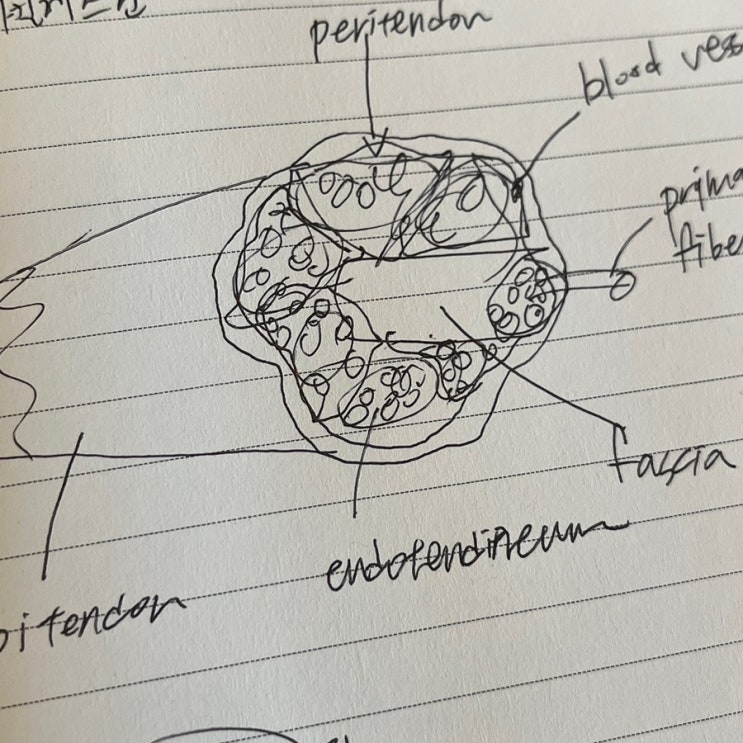 peritendon
blood vess
prima
fiber
fascia
endotendineum
pitendon